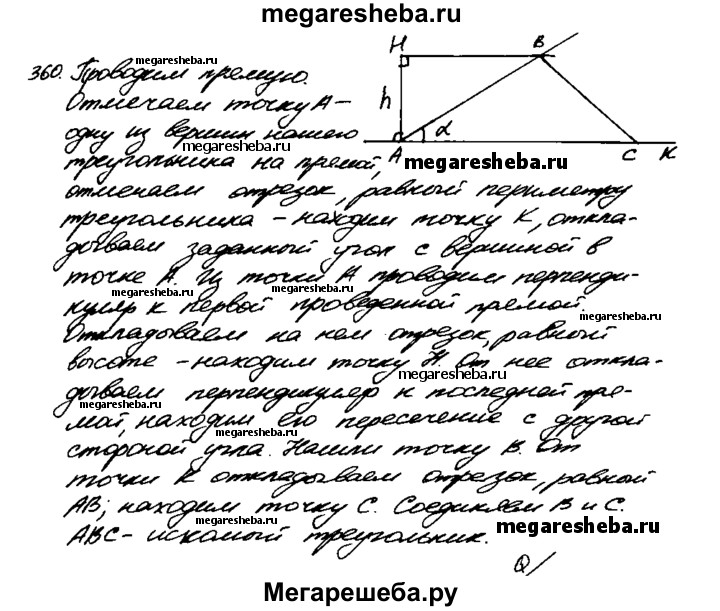 megaresheba.ru
360. Проводим прямую.
megaresheba.ru
Отмечаем точку А –
одну из вершин нашего
треугольника на прямой,
H B
h α
A C K
megaresheba.ru
megaresheba.ru
отмечаем отрезок, равный периметру
треугольника – находим точку К, откла-
megaresheba.ru
дываем заданный угол с вершиной в
точке А. Из точки А проводим перпенди-
megaresheba.ru
megaresheba.ru
куляр к первой проведенной прямой.
Откладываем на нем отрезок, равный
megaresheba.ru
высоте – находим точку Н. От нее откла-
megaresheba.ru
дываем перпендикуляр к последней пря-
megaresheba.ru
мой, находим его пересечение с другой
megaresheba.ru
стороной угла. Нашли точку В. От
точки К откладываем отрезок, равный
megaresheba.ru
АВ; находим точку С. Соединяем В и С.
megaresheba.ru
megaresheba.ru
АВС – искомый треугольник.
Мегарешеба.ру